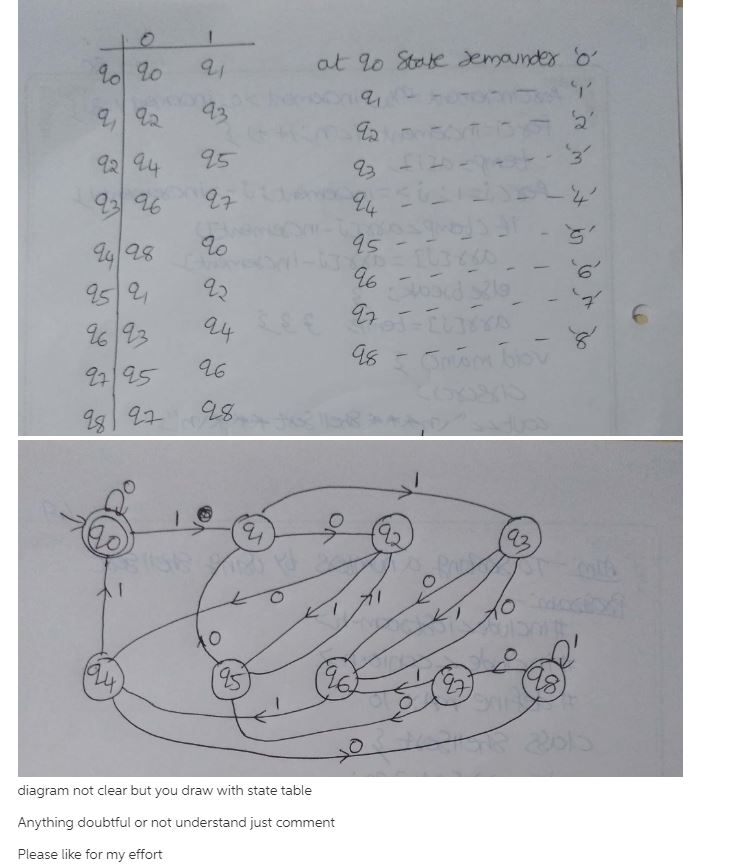 0 1
q0 q0 q1 at q0 State remainder '0'
q1 q2 q3 q1 - - - - - '1'
q2 q4 q5 q2 - - - - - '2'
q3 q6 q7 q3 - - - - - '3'
q4 q8 q0 q4 - - - - - '4'
q5 q1 q2 q5 - - - - - '5'
q6 q3 q4 q6 - - - - - '6'
q7 q5 q6 q7 - - - - - '7'
q8 q7 q8 q8 - - - - - '8'
0 1
q0 1 q1 0 q2 q3
1 0 0 1 1 0 1 0
q4 0 q5 q6 1 q7 0 q8 1
1 0
0
diagram not clear but you draw with state table
Anything doubtful or not understand just comment
Please like for my effort